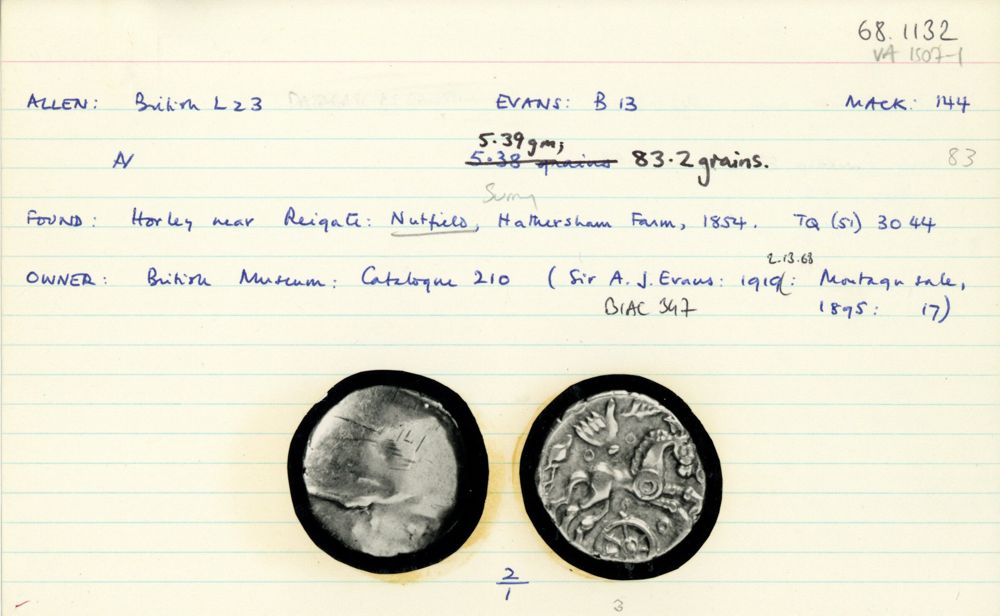 68.1132
VA 1507-1
ALLEN: British L 23 EVANS: B 13 MACK: 144
5.39gm;
N 5.38 grains 83.2 grains. 83
Surrey
FOUND: Horley near Reigate: Nutfield, Hathersham Farm, 1854. TQ (51) 30 44
2.13.68
OWNER: British Museum: Catalogue 210 (Sir A. J. Evans: 1919: Montagu sale,
BIAC 347 1895: 17)
2
1
3